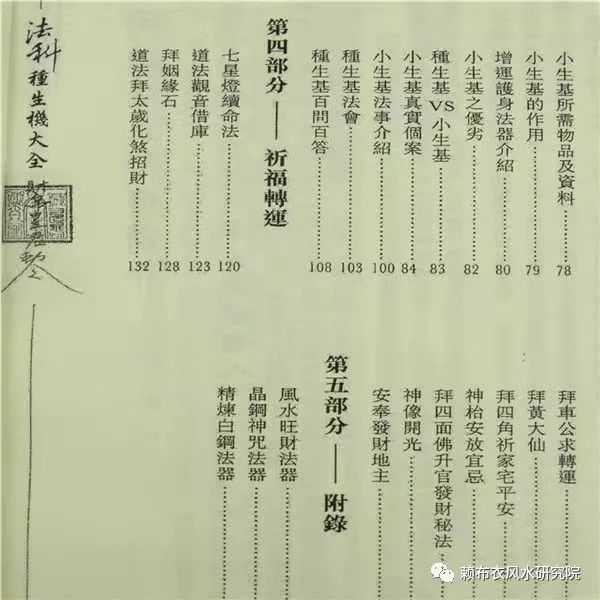 法科種生機大全
小生基所需物品及資料 78
小生基的作用 79
增運護身法器介紹 80
小生基之優劣 82
種生基VS小生基 83
小生基真實個案 84
小生基法事介紹 100
種生基法會 103
種生基百問百答 108
第四部分 —— 祈福轉運
七星燈續命法 120
道法觀音借庫 123
拜姻緣石 128
道法拜太歲化煞招財 132
拜車公求轉運
拜黃大仙
拜四角祈家宅平安
神枱安放宜忌
拜四面佛升官發財秘法
神像開光
安奉發財地主
第五部分 —— 附錄
風水旺財法器
晶鋼神咒法器
精煉白鋼法器
赖布衣风水研究院